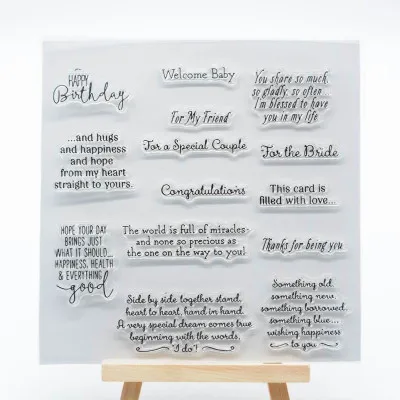 HAPPY
Birthday
Welcome Baby
You share so much,
so gladly, so often...
I'm blessed to have
you in my life.
For My Friend
...and hugs
and happiness
and hope
from my heart
straight to yours.
For a Special Couple
For the Bride
Congratulations
This card is
filled with love...
HOPE YOUR DAY
BRINGS JUST
WHAT IT SHOULD...
HAPPINESS, HEALTH
& EVERYTHING
good
The world is full of miracles
and none so precious as
the one on the way to you!
Thanks for being you
Side by side together stand,
heart to heart, hand in hand.
A very special dream comes true
beginning with the words,
"I do"!
Something old,
something new,
something borrowed,
something blue...
wishing happiness
to you